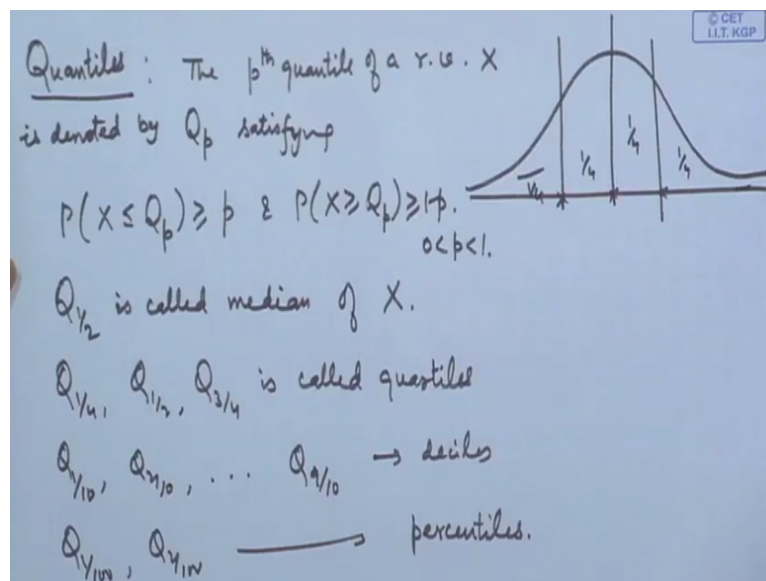 © CET
I.I.T. KGP
Quantiles : The pth quantile of a r.v. X
is denoted by Qp satisfying
P(X ≤ Qp) ≥ p & P(X ≥ Qp) ≥ 1-p.
0 < p < 1.
1/4 1/4 1/4 1/4
Q1/2 is called median of X.
Q1/4, Q1/2, Q3/4 is called quartiles
Q1/10, Q2/10, ... Q9/10 → deciles
Q1/100, Q2/100 ⟶ percentiles.